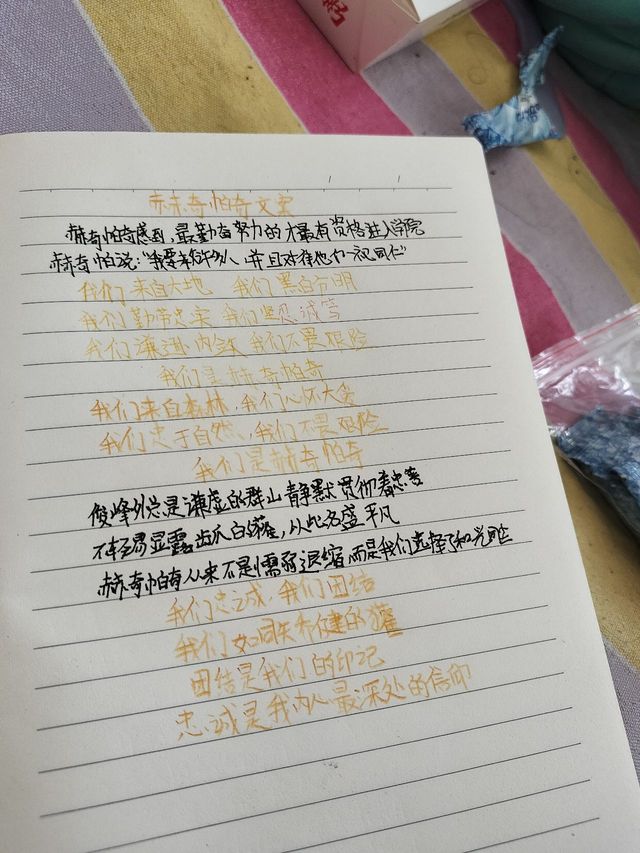 赫奇帕奇文案
赫奇帕奇感到,最勤奋努力的才最有资格进入学院
赫奇帕说:"我要来教许多人,并且对待他们一视同仁"
我们来自大地 我们黑白分明
我们勤劳忠实 我们坚忍诚笃
我们谦逊内敛 我们不畏艰险
我们是赫奇帕奇
我们来自森林,我们心怀大爱
我们忠于自然,我们不畏艰险
我们是赫奇帕奇
俊峰外总是谦虚的群山 静默贯彻着忠笃
不轻易显露齿爪白的獾,从此名盛平凡
赫奇帕奇从来不是懦弱退缩,而是我们选择了和光同尘
我们忠诚,我们团结
我们如同矫健的獾
团结是我们的印记
忠诚是我内心最深处的信仰